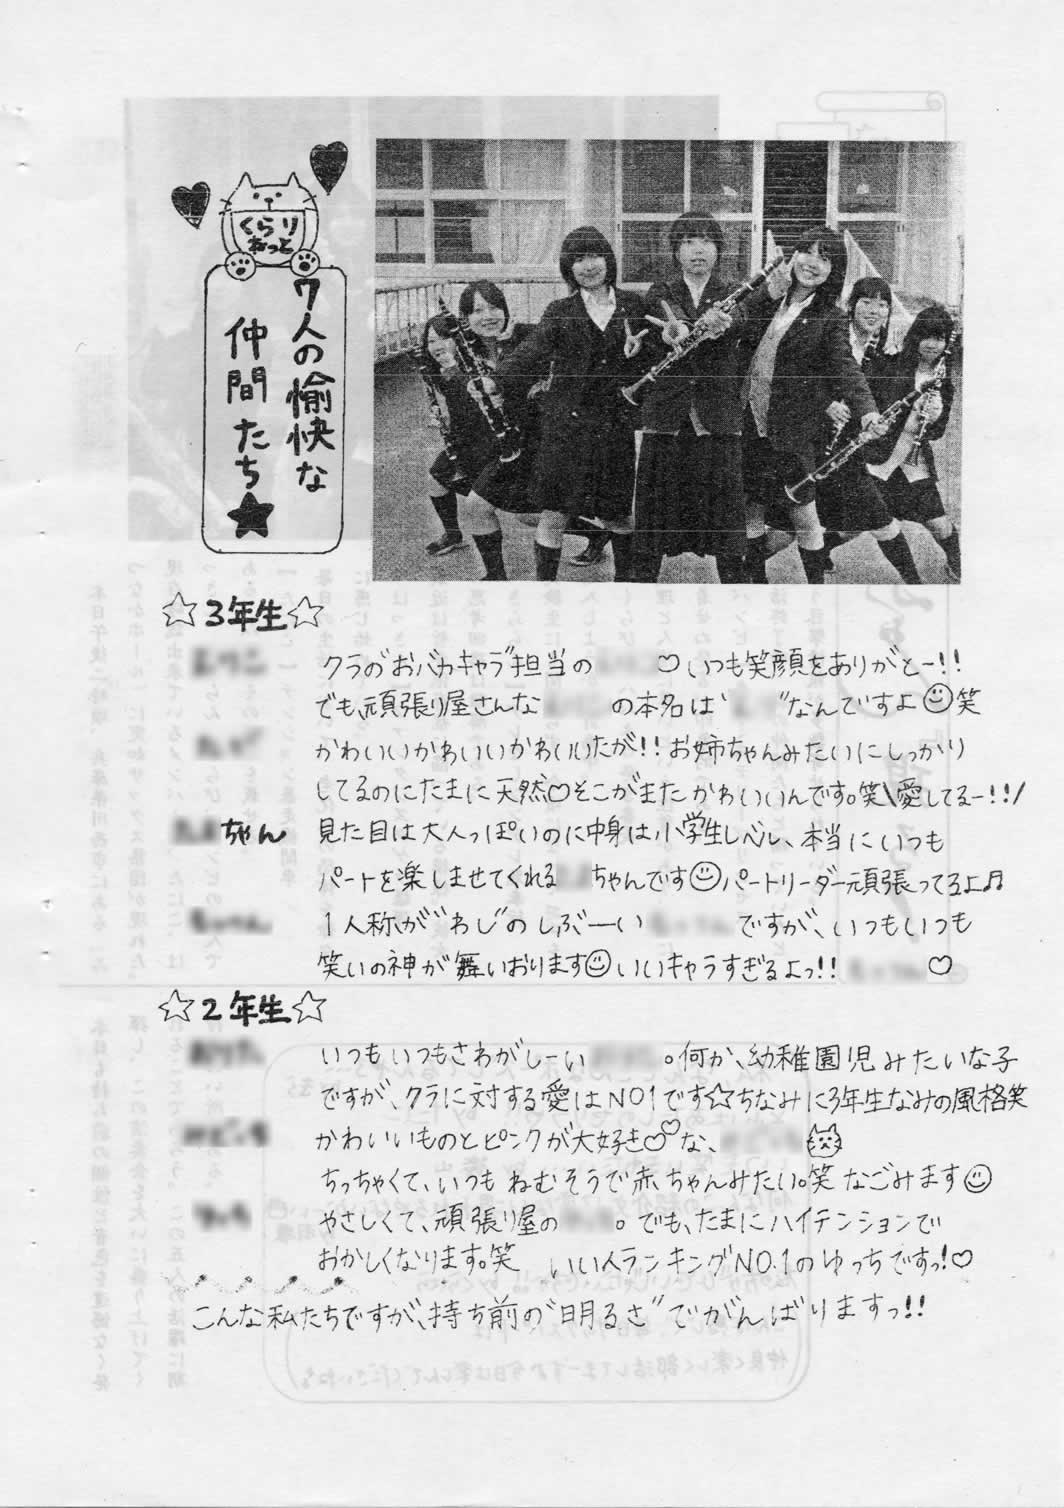 くらり
ねっと
7人の愉快な
仲間たち★
☆3年生☆
クラの"おバカキャラ"担当の ♡いつも笑顔をありがとー!!
でも、頑張り屋さんな の本名は" "なんですよ☺笑
かわいいかわいいかわいいたが!!お姉ちゃんみたいにしっかり
してるのにたまに天然♡そこがまたかわいいんです。笑\愛してるー!!/
ちゃん 見た目は大人っぽいのに中身は小学生レベル、本当にいつも
パートを楽しませてくれる ちゃんです☺パートリーダー頑張ってるよ♬
1人称が"わし"のしぶーい ですが、いつもいつも
笑いの神が舞いおります☺いいキャラすぎるよっ!! ♡
☆2年生☆
いつもいつもさわがしーい 。何か、幼稚園児みたいな子
ですが、クラに対する愛はNO1です☆ちなみに3年生なみの風格笑
かわいいものとピンクが大好き♡な、
ちっちゃくて、いつもねむそうで赤ちゃんみたい。笑 なごみます☺
やさしくて、頑張り屋の 。でも、たまにハイテンションで
おかしくなります。笑 いい人ランキングNO.1のゆっちですっ!♡
こんな私たちですが、持ち前の"明るさ"でがんばりますっ!!